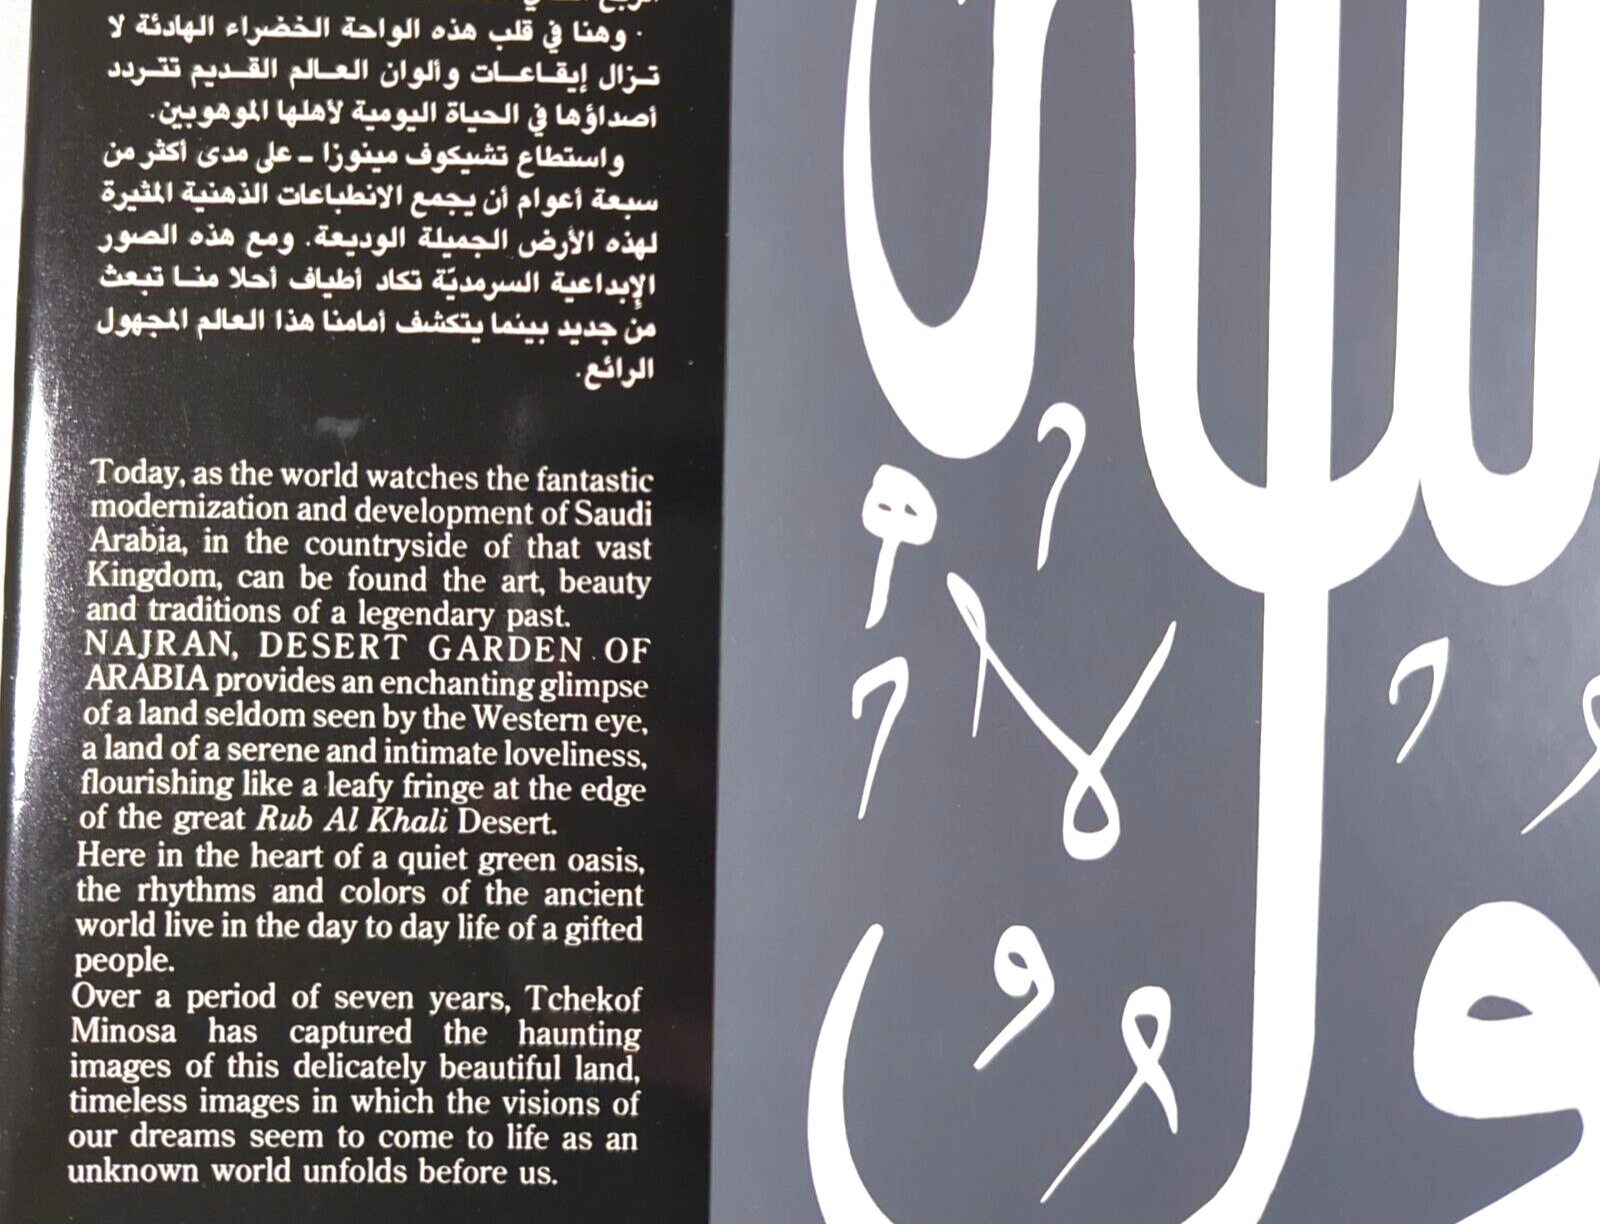 · وهنا في قلب هذه الواحة الخضراء الهادئة لا
تـزال إيقـاعـات وألوان العـالم القـديم تتـردد
أصداؤها في الحياة اليومية لأهلها الموهوبين.
واستطاع تشيكوف مينوزا ــ على مدى أكثر من
سبعة أعوام أن يجمع الانطباعات الذهنية المثيرة
لهذه الأرض الجميلة الوديعة. ومع هذه الصور
الإبداعية السرمديّة تكاد أطياف أحلا منـا تبعث
من جديد بينما يتكشف أمامنا هذا العالم المجهول
الرائع.
Today, as the world watches the fantastic
modernization and development of Saudi
Arabia, in the countryside of that vast
Kingdom, can be found the art, beauty
and traditions of a legendary past.
NAJRAN, DESERT GARDEN OF
ARABIA provides an enchanting glimpse
of a land seldom seen by the Western eye,
a land of a serene and intimate loveliness,
flourishing like a leafy fringe at the edge
of the great Rub Al Khali Desert.
Here in the heart of a quiet green oasis,
the rhythms and colors of the ancient
world live in the day to day life of a gifted
people.
Over a period of seven years, Tchekof
Minosa has captured the haunting
images of this delicately beautiful land,
timeless images in which the visions of
our dreams seem to come to life as an
unknown world unfolds before us.